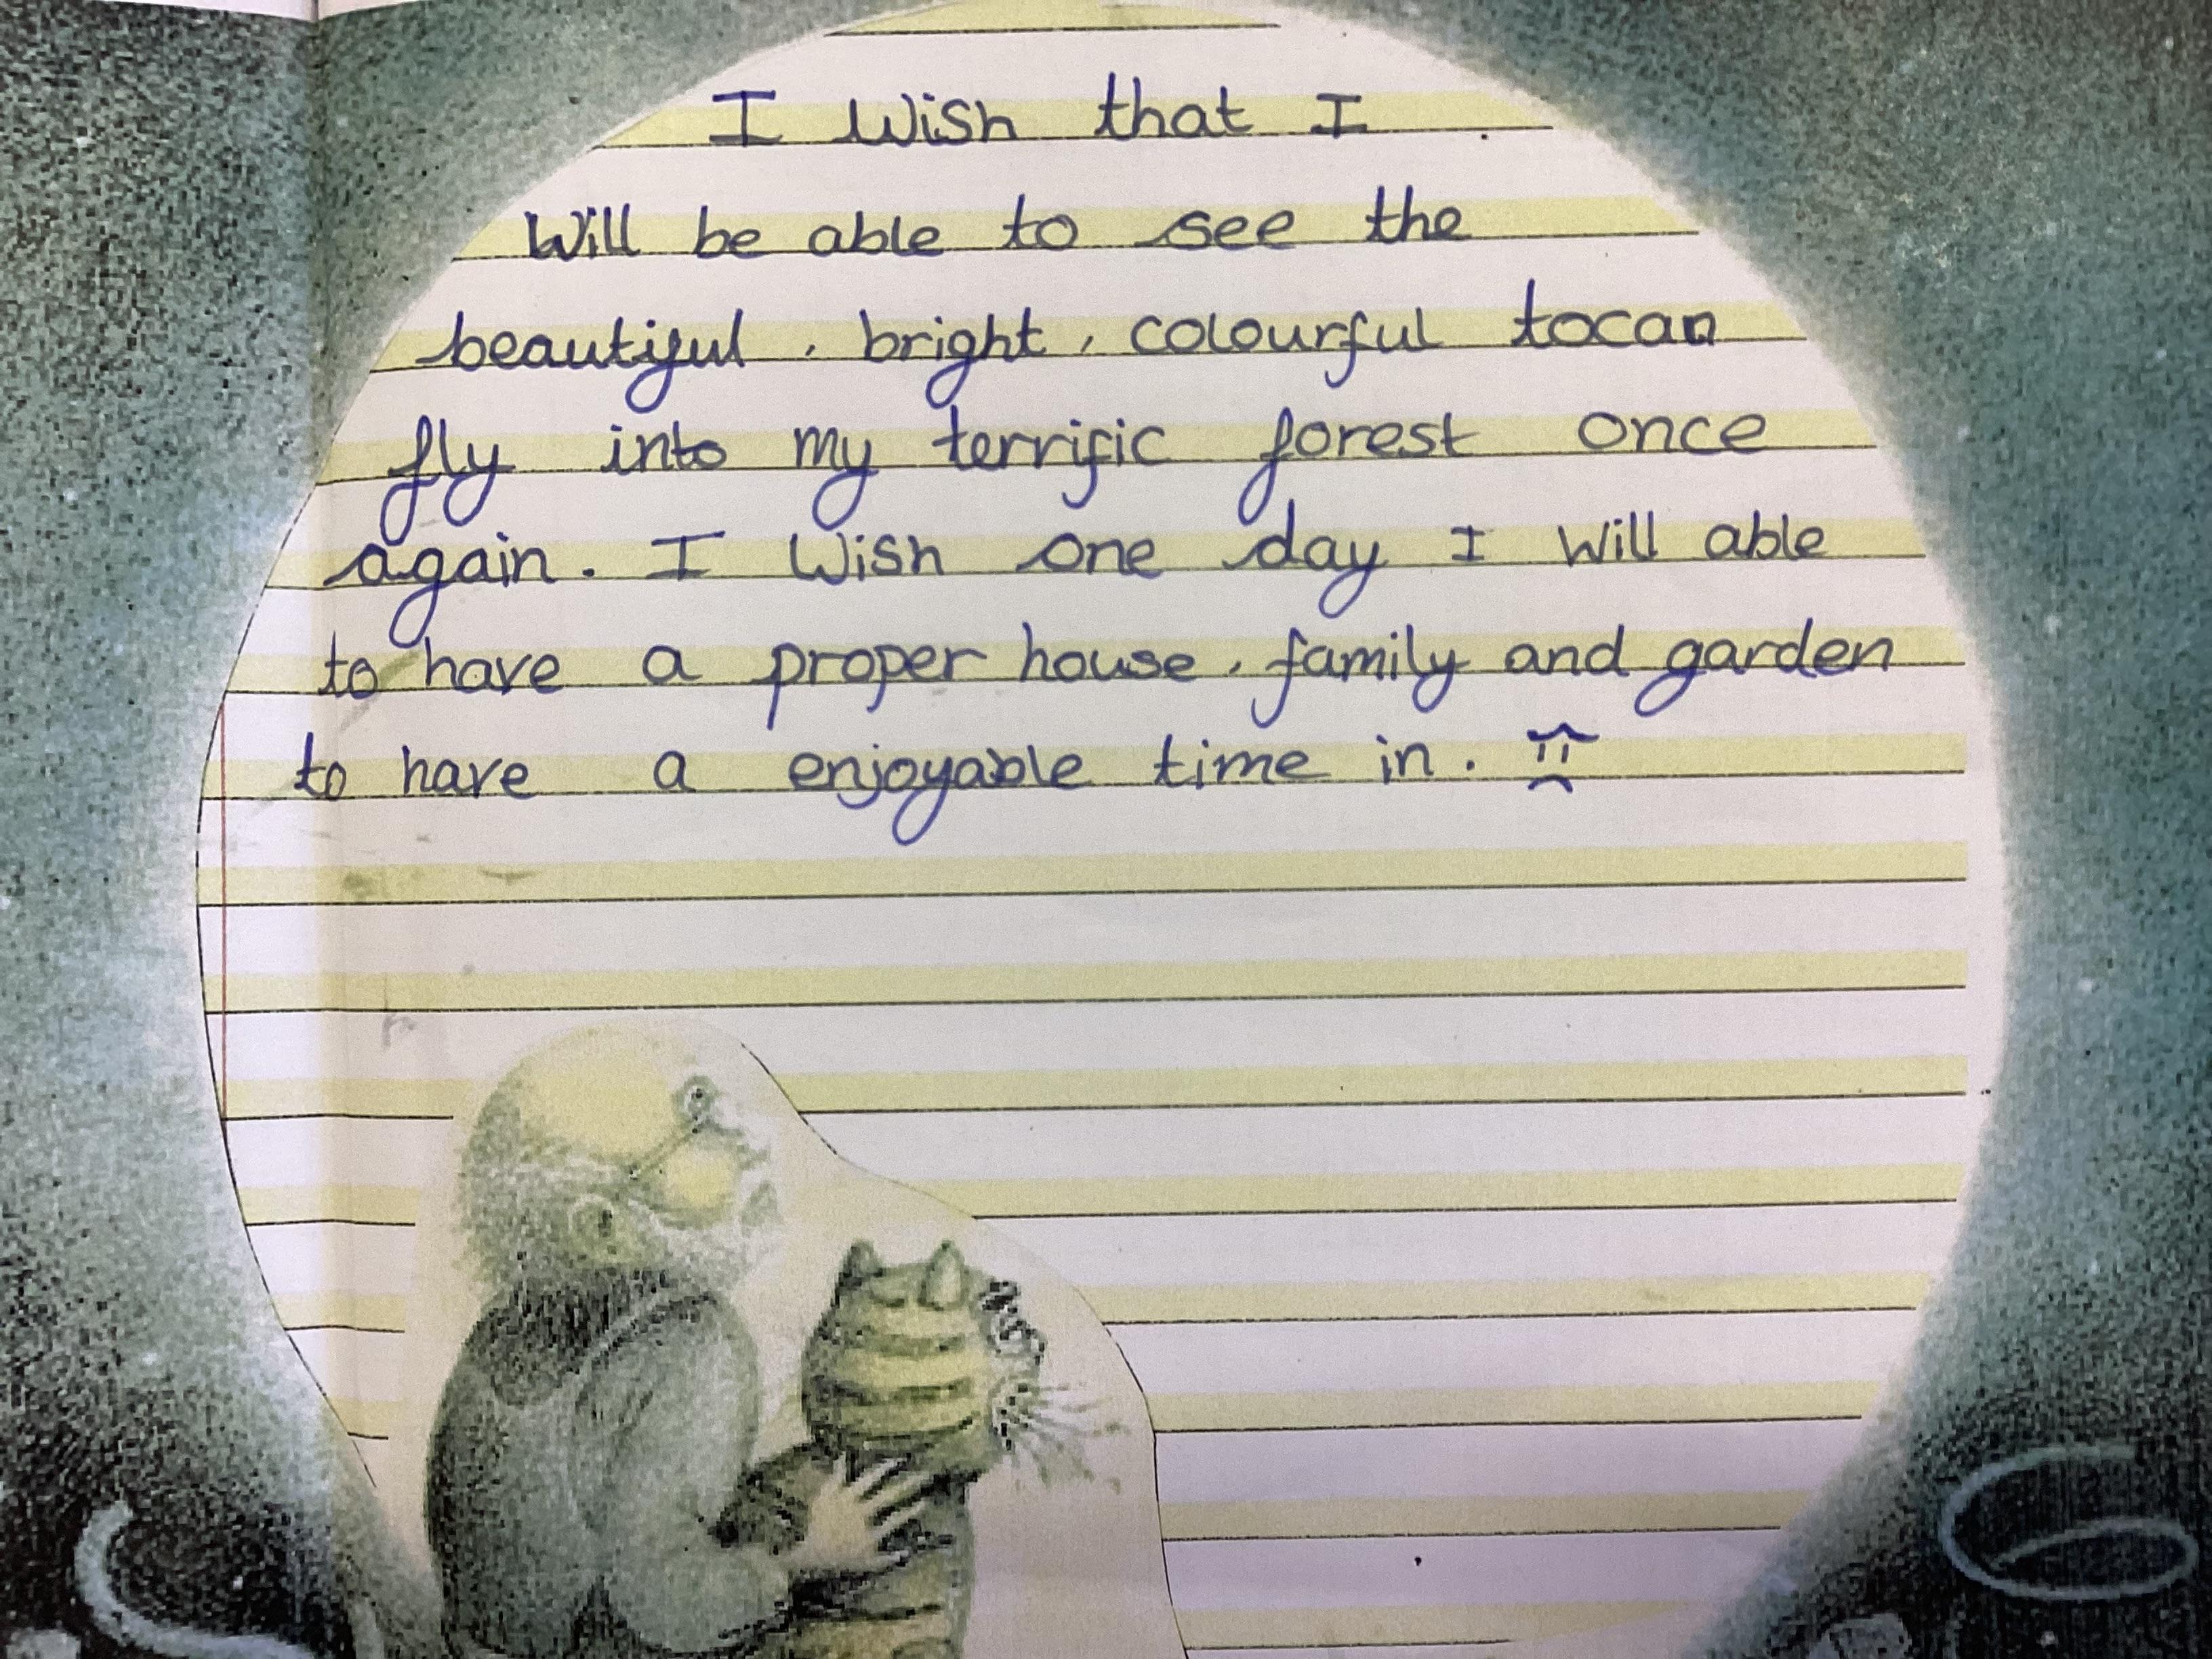 I Wish that I
Will be able to see the
beautiful, bright, colourful tocan
fly into my terrific forest once
again. I Wish one day I Will able
to have a proper house, family and garden
to have a enjoyable time in.